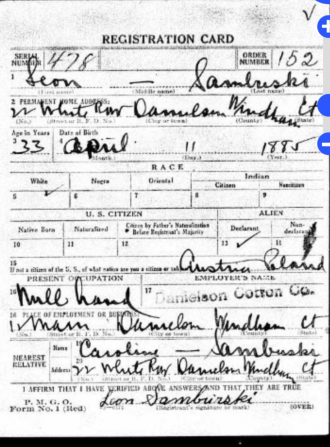 REGISTRATION CARD
SERIAL NUMBER 478 ORDER NUMBER 152
1 Leon — Sambuski
(First name) (Middle name) (Last name)
2 PERMANENT HOME ADDRESS:
22 White Row Danielson Windham Ct
(No.) (Street or R. F. D. No.) (City or town) (County) (State)
Age in Years Date of Birth
3 33 4 April 11 1885
(Month.) (Day.) (Year.)
RACE
White Negro Oriental Indian
Citizen Noncitizen
5 ✓ 6 7 8 9
U. S. CITIZEN ALIEN
Native Born Naturalized Citizen by Father's Naturalization Before Registrant's Majority Declarant Non-declarant
10 11 12 13 ✓ 14
15 If not a citizen of the U. S., of what nation are you a citizen or Austria Poland
PRESENT OCCUPATION EMPLOYER'S NAME
16 Mill hand 17 Danielson Cotton Co.
18 PLACE OF EMPLOYMENT OR BUSINESS:
Main Danielson Windham Ct
(No.) (Street or R. F. D. No.) (City or town) (County) (State)
NEAREST RELATIVE
Name 19 Caroline — Sambuski
Address 20 22 White Row Danielson Windham Ct
(No.) (Street or R. F. D. No.) (City or town) (County) (State)
I AFFIRM THAT I HAVE VERIFIED ABOVE ANSWERS AND THAT THEY ARE TRUE
P. M. G. O.
Form No. 1 (Red) Leon Samburski
(Registrant's signature or mark) (OVER)